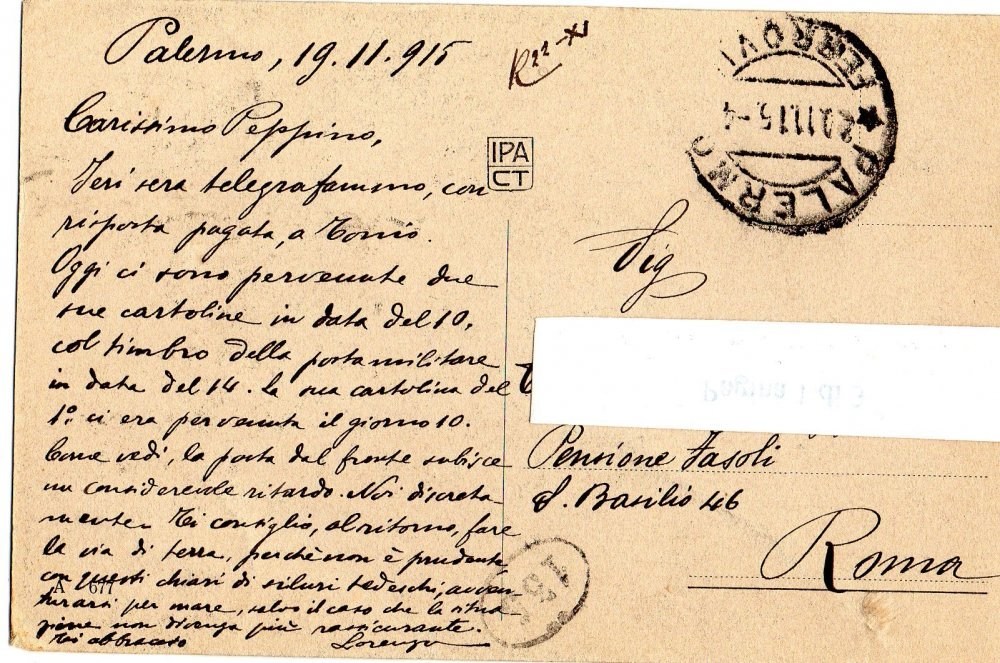 Palermo, 19.11.915
R 22-XI
Carissimo Peppino,
Ieri sera telegrafammo, con
risposta pagata, a Tonio.
Oggi ci sono pervenute due
sue cartoline in data del 10,
col timbro della posta militare
in data del 14. La sua cartolina del
1º ci era pervenuta il giorno 10.
Come vedi, la posta dal fronte subisce
un considerevole ritardo. Noi discreta
mente. Ti consiglio, al ritorno, fare
la via di terra, perchè non è prudente,
con questi chiari di siluri tedeschi, avven
turarsi per mare, salvo il caso che la situa
zione non divenga più rassicurante.
Ti abbraccio Lorenzo
A 677
IPA
CT
PALERMO
FERROVI
20.11.15-4
Sig
Pagina 1 di
Pensione Fasoli
S. Basilio 46
Roma